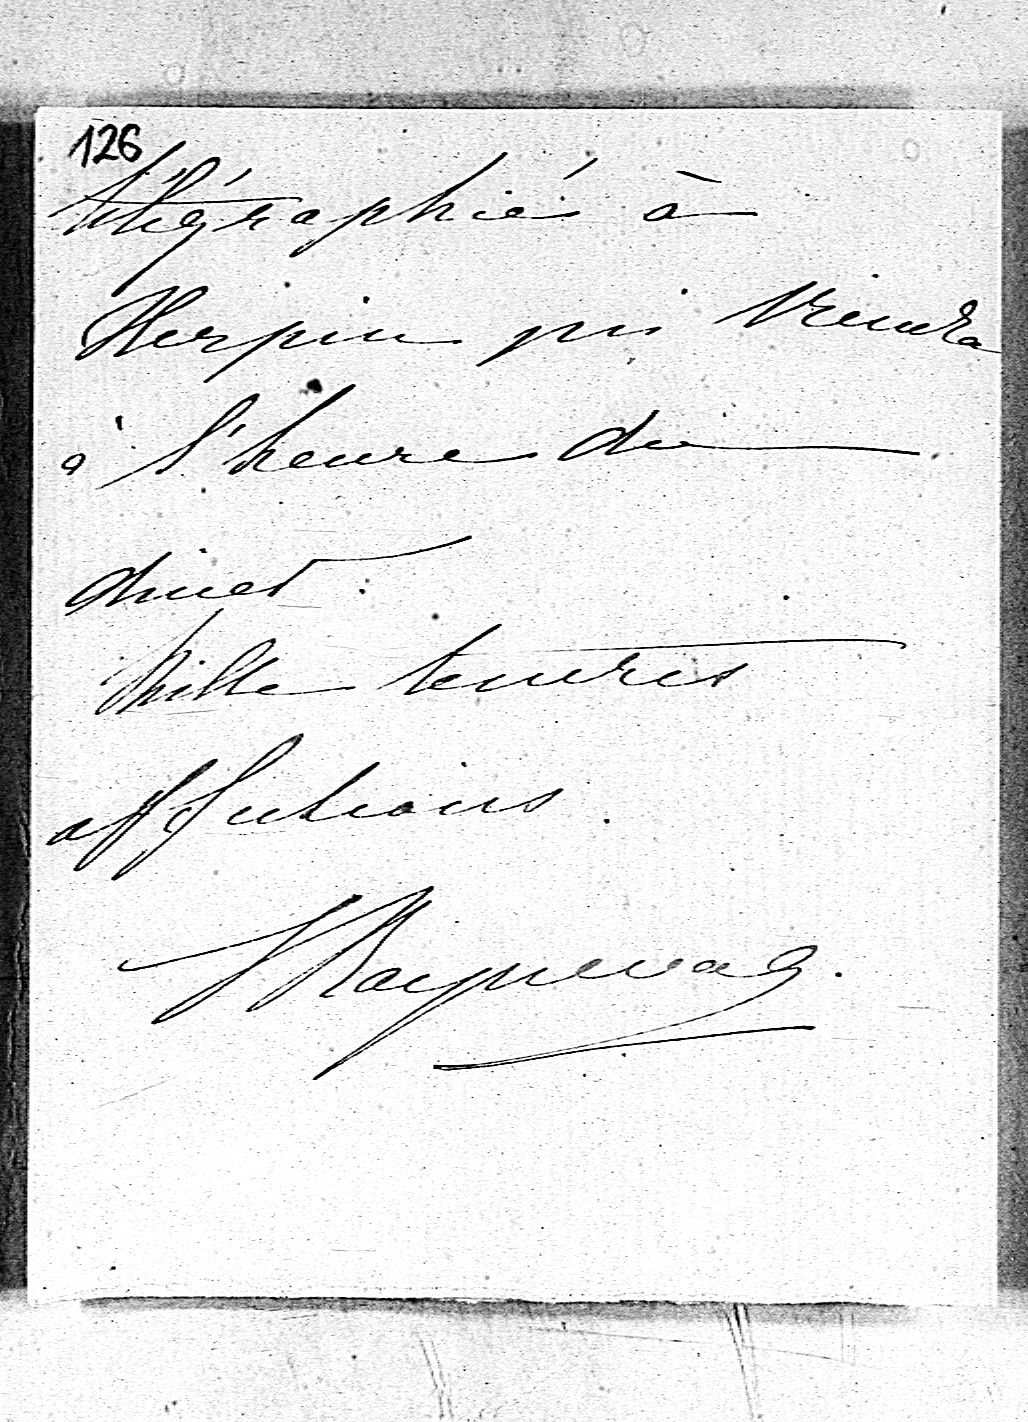 126
télégraphié à
Herpin qui viendra
à l'heure du
diner.
Mille tendres
affections.